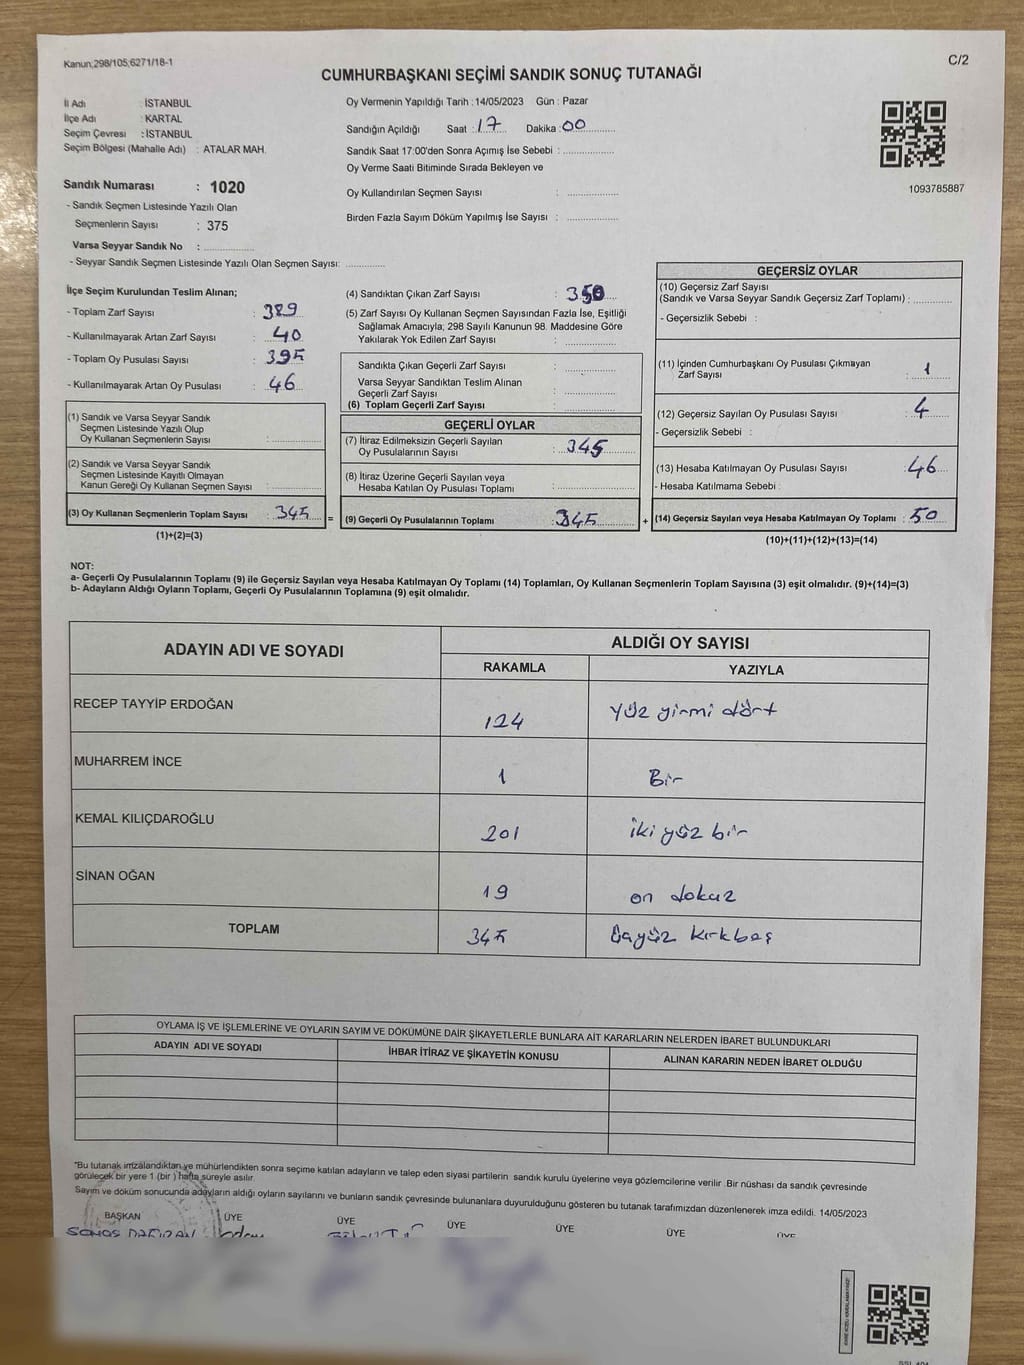 Kanun;298/105;6271/18-1
C/2
CUMHURBAŞKANI SEÇİMİ SANDIK SONUÇ TUTANAĞI
İl Adı : İSTANBUL
İlçe Adı : KARTAL
Seçim Çevresi : İSTANBUL
Seçim Bölgesi (Mahalle Adı) : ATALAR MAH.
Sandık Numarası : 1020
- Sandık Seçmen Listesinde Yazılı Olan
Seçmenlerin Sayısı : 375
Varsa Seyyar Sandık No :
- Seyyar Sandık Seçmen Listesinde Yazılı Olan Seçmen Sayısı:
Oy Vermenin Yapıldığı Tarih : 14/05/2023 Gün : Pazar
Sandığın Açıldığı Saat : 17 Dakika : 00
Sandık Saat 17:00'den Sonra Açımış İse Sebebi :
Oy Verme Saati Bitiminde Sırada Bekleyen ve
Oy Kullandırılan Seçmen Sayısı :
Birden Fazla Sayım Döküm Yapılmış İse Sayısı :
1093785887
İlçe Seçim Kurulundan Teslim Alınan;
- Toplam Zarf Sayısı : 389
- Kullanılmayarak Artan Zarf Sayısı : 40
- Toplam Oy Pusulası Sayısı : 395
- Kullanılmayarak Artan Oy Pusulası : 46
(1) Sandık ve Varsa Seyyar Sandık
Seçmen Listesinde Yazılı Olup
Oy Kullanan Seçmenlerin Sayısı :
(2) Sandık ve Varsa Seyyar Sandık
Seçmen Listesinde Kayıtlı Olmayan
Kanun Gereği Oy Kullanan Seçmen Sayısı :
(3) Oy Kullanan Seçmenlerin Toplam Sayısı : 345 =
(1)+(2)=(3)
(4) Sandıktan Çıkan Zarf Sayısı : 350
(5) Zarf Sayısı Oy Kullanan Seçmen Sayısından Fazla İse, Eşitliği
Sağlamak Amacıyla; 298 Sayılı Kanunun 98. Maddesine Göre
Yakılarak Yok Edilen Zarf Sayısı :
Sandıkta Çıkan Geçerli Zarf Sayısı :
Varsa Seyyar Sandıktan Teslim Alınan
Geçerli Zarf Sayısı :
(6) Toplam Geçerli Zarf Sayısı :
GEÇERLİ OYLAR
(7) İtiraz Edilmeksizin Geçerli Sayılan
Oy Pusulalarının Sayısı : 345
(8) İtiraz Üzerine Geçerli Sayılan veya
Hesaba Katılan Oy Pusulası Toplamı :
(9) Geçerli Oy Pusulalarının Toplamı : 345 +
GEÇERSİZ OYLAR
(10) Geçersiz Zarf Sayısı
(Sandık ve Varsa Seyyar Sandık Geçersiz Zarf Toplamı) :
- Geçersizlik Sebebi :
(11) İçinden Cumhurbaşkanı Oy Pusulası Çıkmayan
Zarf Sayısı : 1
(12) Geçersiz Sayılan Oy Pusulası Sayısı : 4
- Geçersizlik Sebebi :
(13) Hesaba Katılmayan Oy Pusulası Sayısı : 46
- Hesaba Katılmama Sebebi :
(14) Geçersiz Sayılan veya Hesaba Katılmayan Oy Toplamı : 50
(10)+(11)+(12)+(13)=(14)
NOT:
a- Geçerli Oy Pusulalarının Toplamı (9) ile Geçersiz Sayılan veya Hesaba Katılmayan Oy Toplamı (14) Toplamları, Oy Kullanan Seçmenlerin Toplam Sayısına (3) eşit olmalıdır. (9)+(14)=(3)
b- Adayların Aldığı Oyların Toplamı, Geçerli Oy Pusulalarının Toplamına (9) eşit olmalıdır.
ADAYIN ADI VE SOYADI ALDIĞI OY SAYISI
RAKAMLA YAZIYLA
RECEP TAYYİP ERDOĞAN 124 Yüz yirmi dört
MUHARREM İNCE 1 Bir
KEMAL KILIÇDAROĞLU 201 iki yüz bir
SİNAN OĞAN 19 on dokuz
TOPLAM 345 üçyüz kırkbeş
OYLAMA İŞ VE İŞLEMLERİNE VE OYLARIN SAYIM VE DÖKÜMÜNE DAİR ŞİKAYETLERLE BUNLARA AİT KARARLARIN NELERDEN İBARET BULUNDUKLARI
ADAYIN ADI VE SOYADI İHBAR İTİRAZ VE ŞİKAYETİN KONUSU ALINAN KARARIN NEDEN İBARET OLDUĞU
"Bu tutanak imzalandıktan ve mühürlendikten sonra seçime katılan adayların ve talep eden siyasi partilerin sandık kurulu üyelerine veya gözlemcilerine verilir .Bir nüshası da sandık çevresinde
görülecek bir yere 1 (bir ) hafta süreyle asılır.
Sayım ve döküm sonucunda adayların aldığı oyların sayılarını ve bunların sandık çevresinde bulunanlara duyurulduğunu gösteren bu tutanak tarafımızdan düzenlenerek imza edildi. 14/05/2023
BAŞKAN ÜYE ÜYE ÜYE ÜYE ÜYE ÜYE